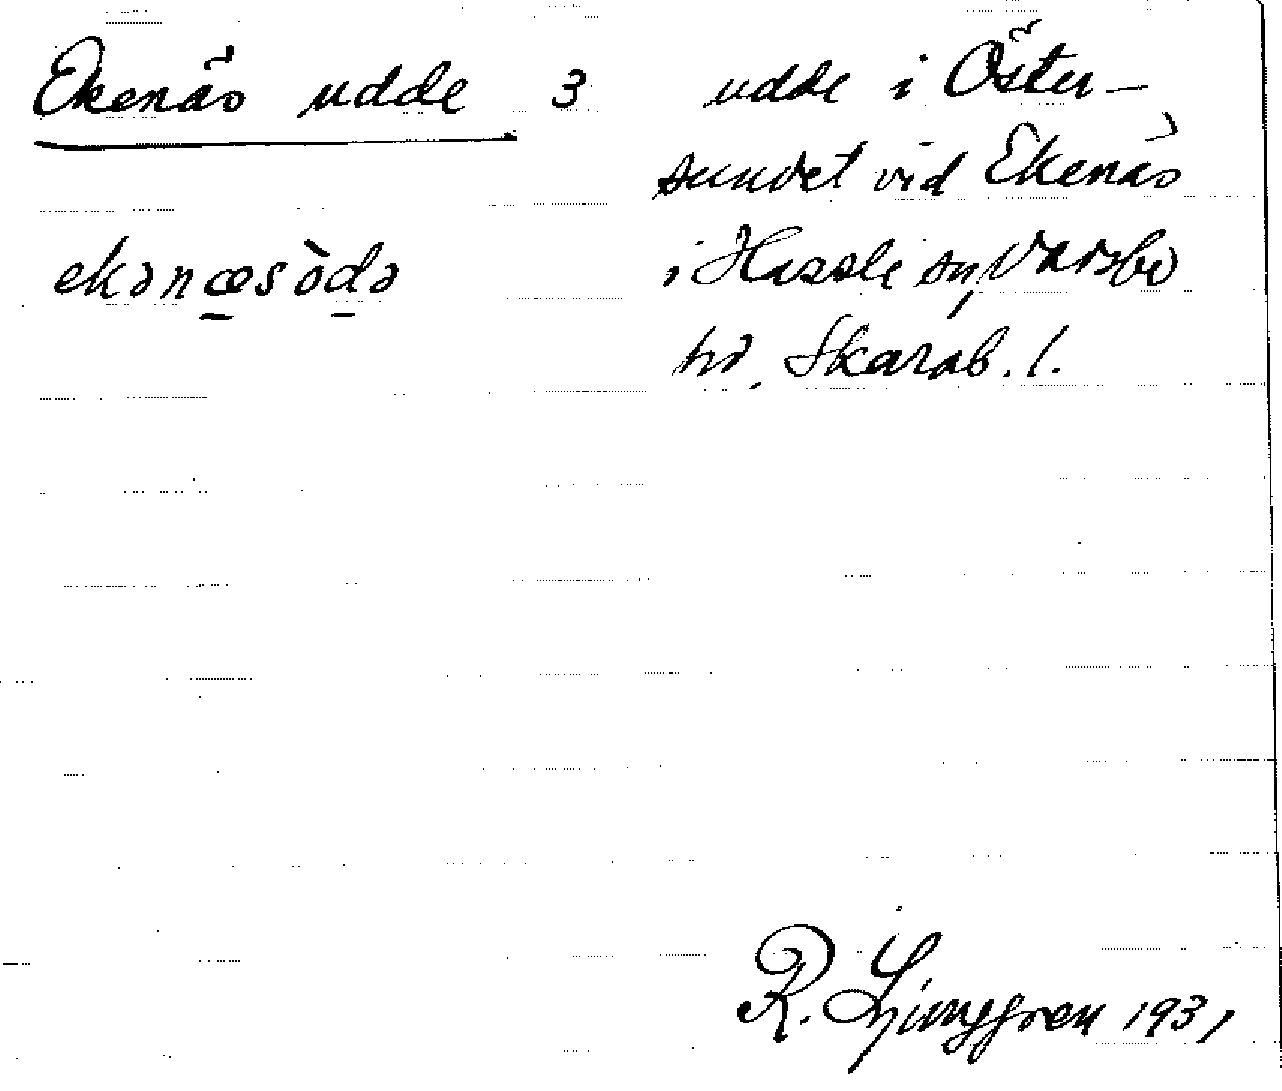 Ekenäs udde 3 udde i Öster-
sundet vid Ekenäs
ekənæsòdə i Hassle sn, Vadsbo
hd, Skarab. l.
R. Ljunggren 1931